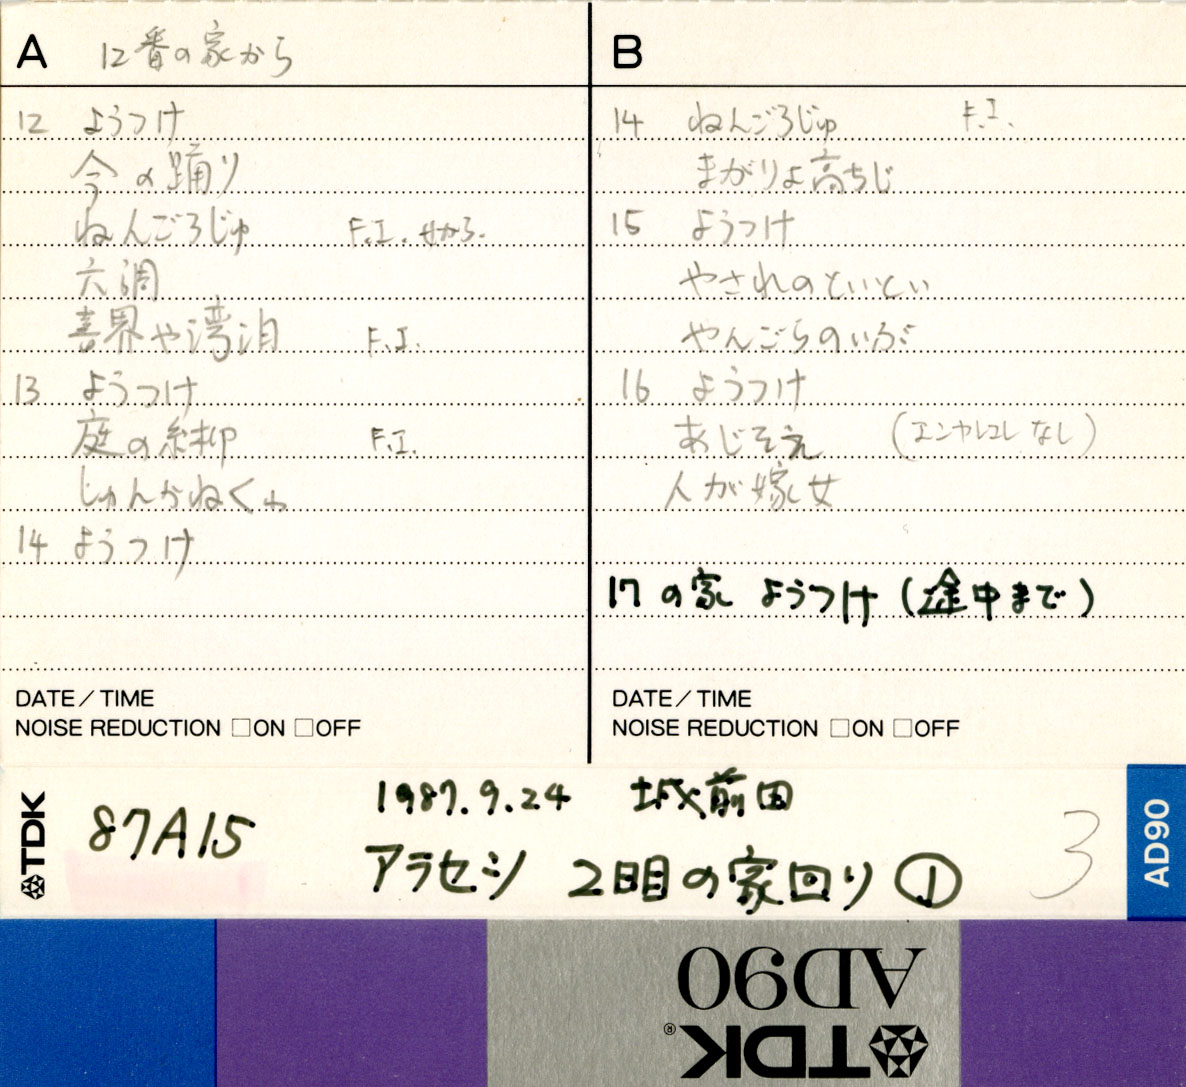 A 12番の家から
12 ようつけ
今の踊り
ねんごろじゅ F.I. せから.
六調
喜界や湾泊 F.I.
13 ようつけ
庭の糸柳 F.I.
じゅんかねくゎ
14 ようつけ
DATE/TIME
NOISE REDUCTION □ON □OFF
B
14 ねんごろじゅ F.I.
まがりよ高ちじ
15 ようつけ
やされのといとい
やんごらのいぶ
16 ようつけ
あじそえ (エンヤレコレなし)
人が嫁女
17の家 ようつけ (途中まで)
DATE/TIME
NOISE REDUCTION □ON □OFF
TDK
87A15
1987.9.24 城前田
アラセツ 2日目の家回り ①
3
AD90
AD90
TDK®